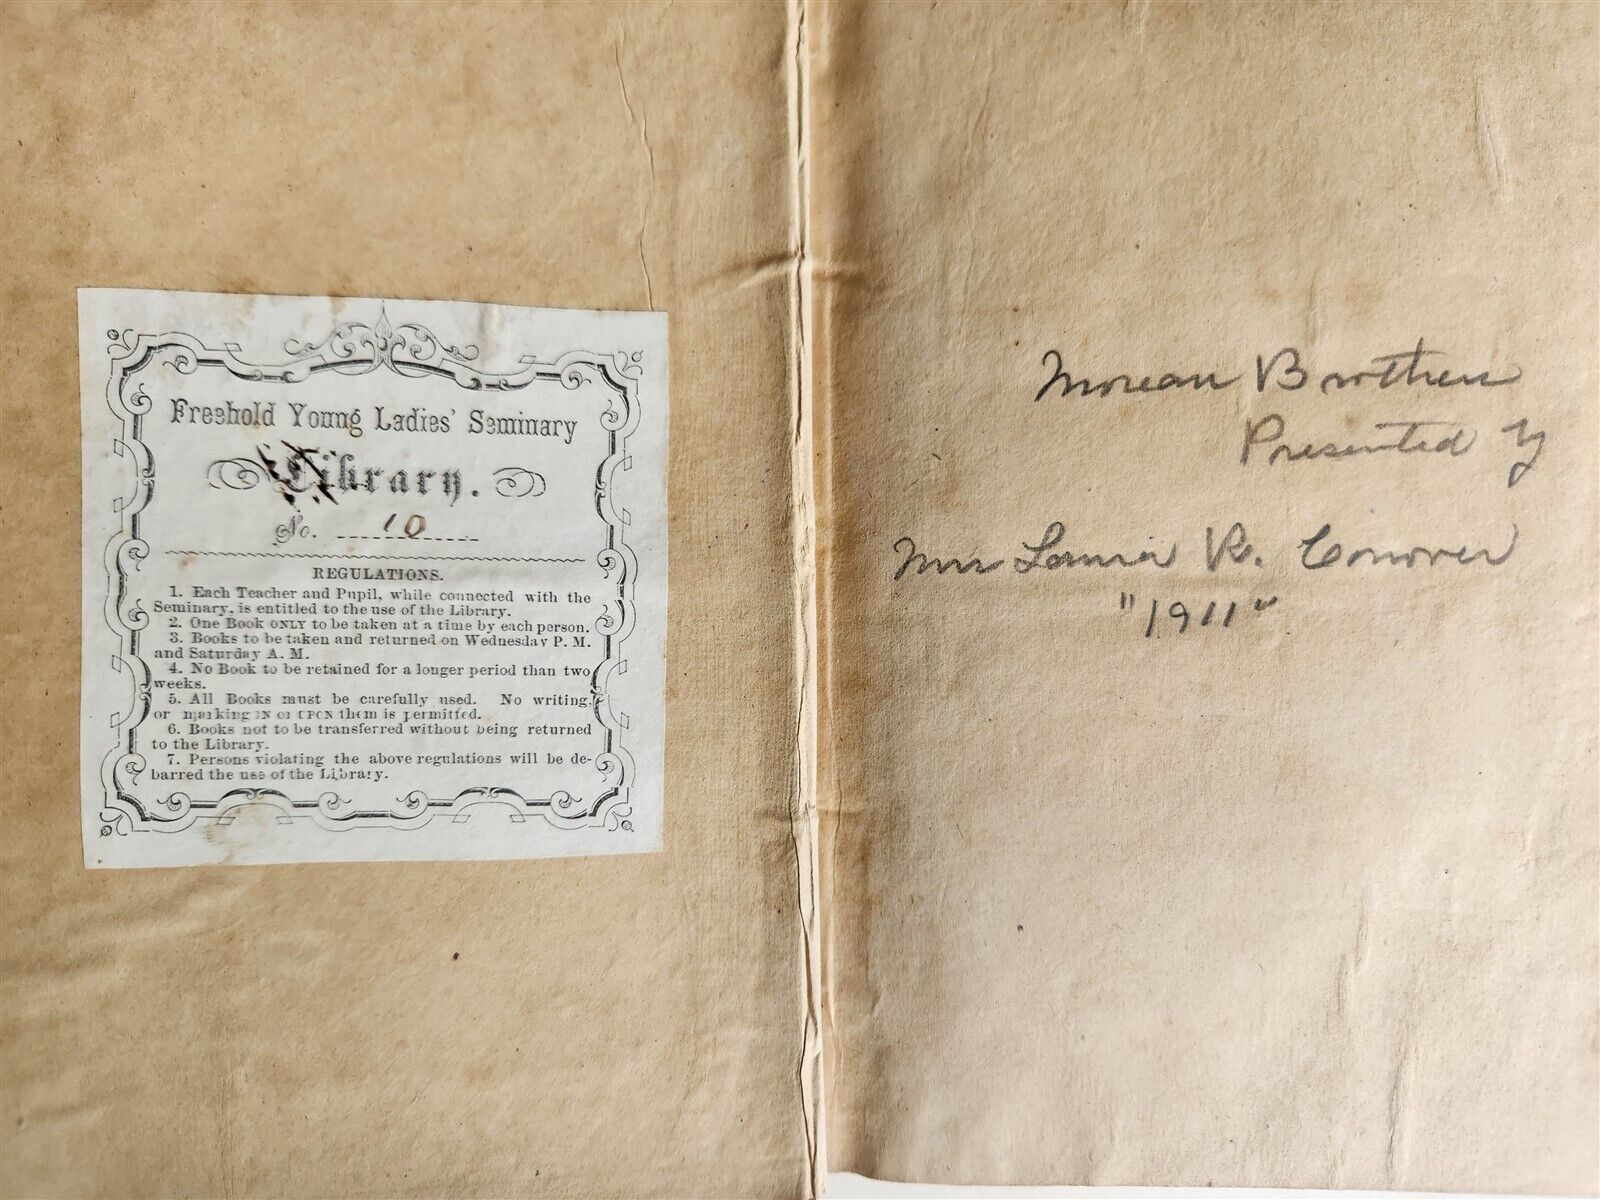 Freehold Young Ladies' Seminary
Library.
No. 10
REGULATIONS.
1. Each Teacher and Pupil, while connected with the
Seminary, is entitled to the use of the Library.
2. One Book ONLY to be taken at a time by each person.
3. Books to be taken and returned on Wednesday P. M.
and Saturday A. M.
4. No Book to be retained for a longer period than two
weeks.
5. All Books must be carefully used. No writing,
or marking IN or UPON them is permitted.
6. Books not to be transferred without being returned
to the Library.
7. Persons violating the above regulations will be de-
barred the use of the Library.
Moreau Brothers
Presented by
Mrs Laura R. Conover
"1911"